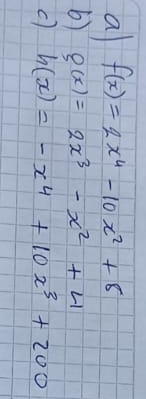 a) f(x) = 2x⁴ - 10x² + 8
b) g(x) = 2x³ - x² + 4
c) h(x) = - x⁴ + 10x³ + 200